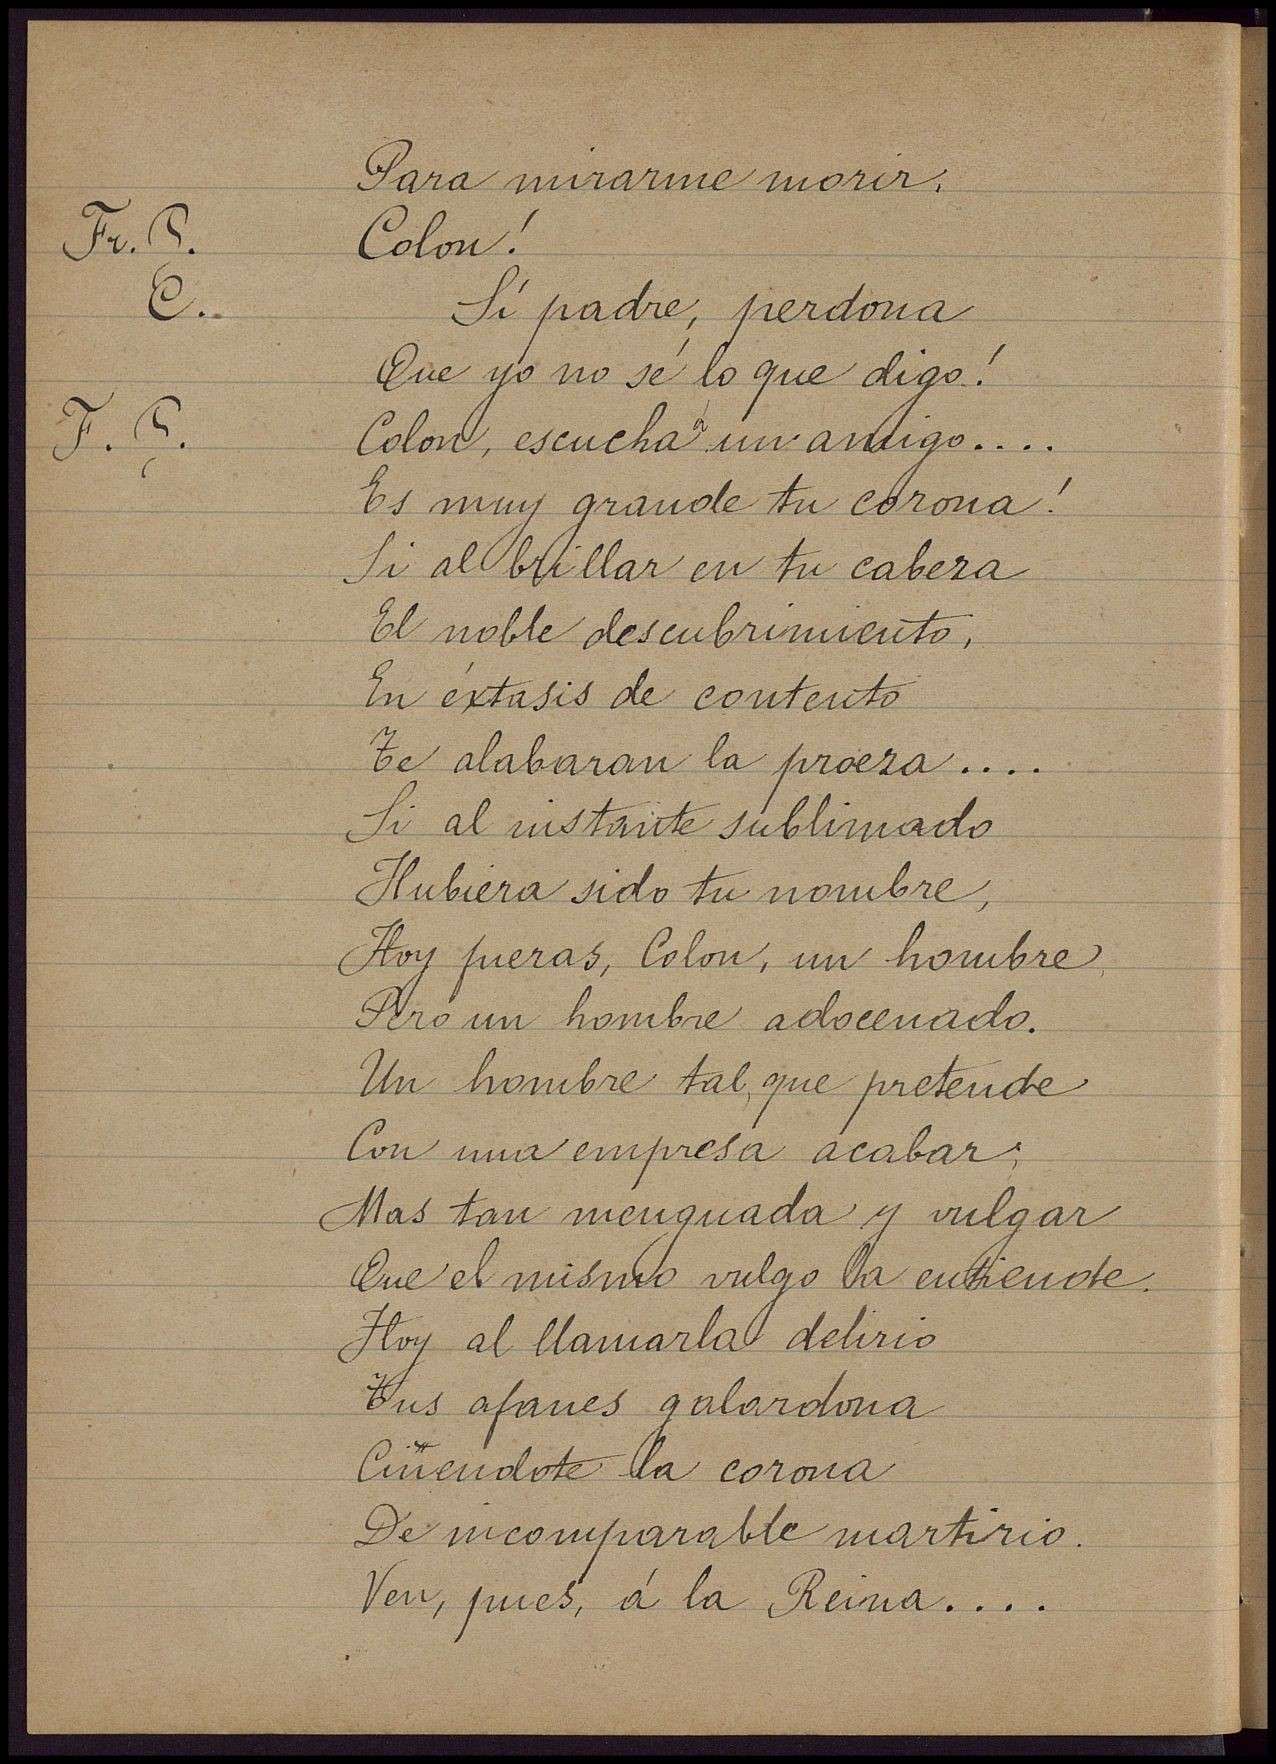 Para mirarme morir.
Fr. P. Colon!
C. Sí padre, perdona
Que yo no sé lo que digo!
F. P. Colon, escucha a un amigo....
Es muy grande tu corona!
Si al brillar en tu cabeza
El noble descubrimiento,
En éxtasis de contento
Te alabaran la proeza....
Si al instante sublimado
Hubiera sido tu nombre,
Hoy fueras, Colon, un hombre,
Pero un hombre adocenado.
Un hombre tal, que pretende
Con una empresa acabar;
Mas tan menguada y vulgar
Que el mismo vulgo la entiende.
Hoy al llamarla delirio
Tus afanes galardona
Ciñendote la corona
De incomparable martirio.
Ven, pues, á la Reina....